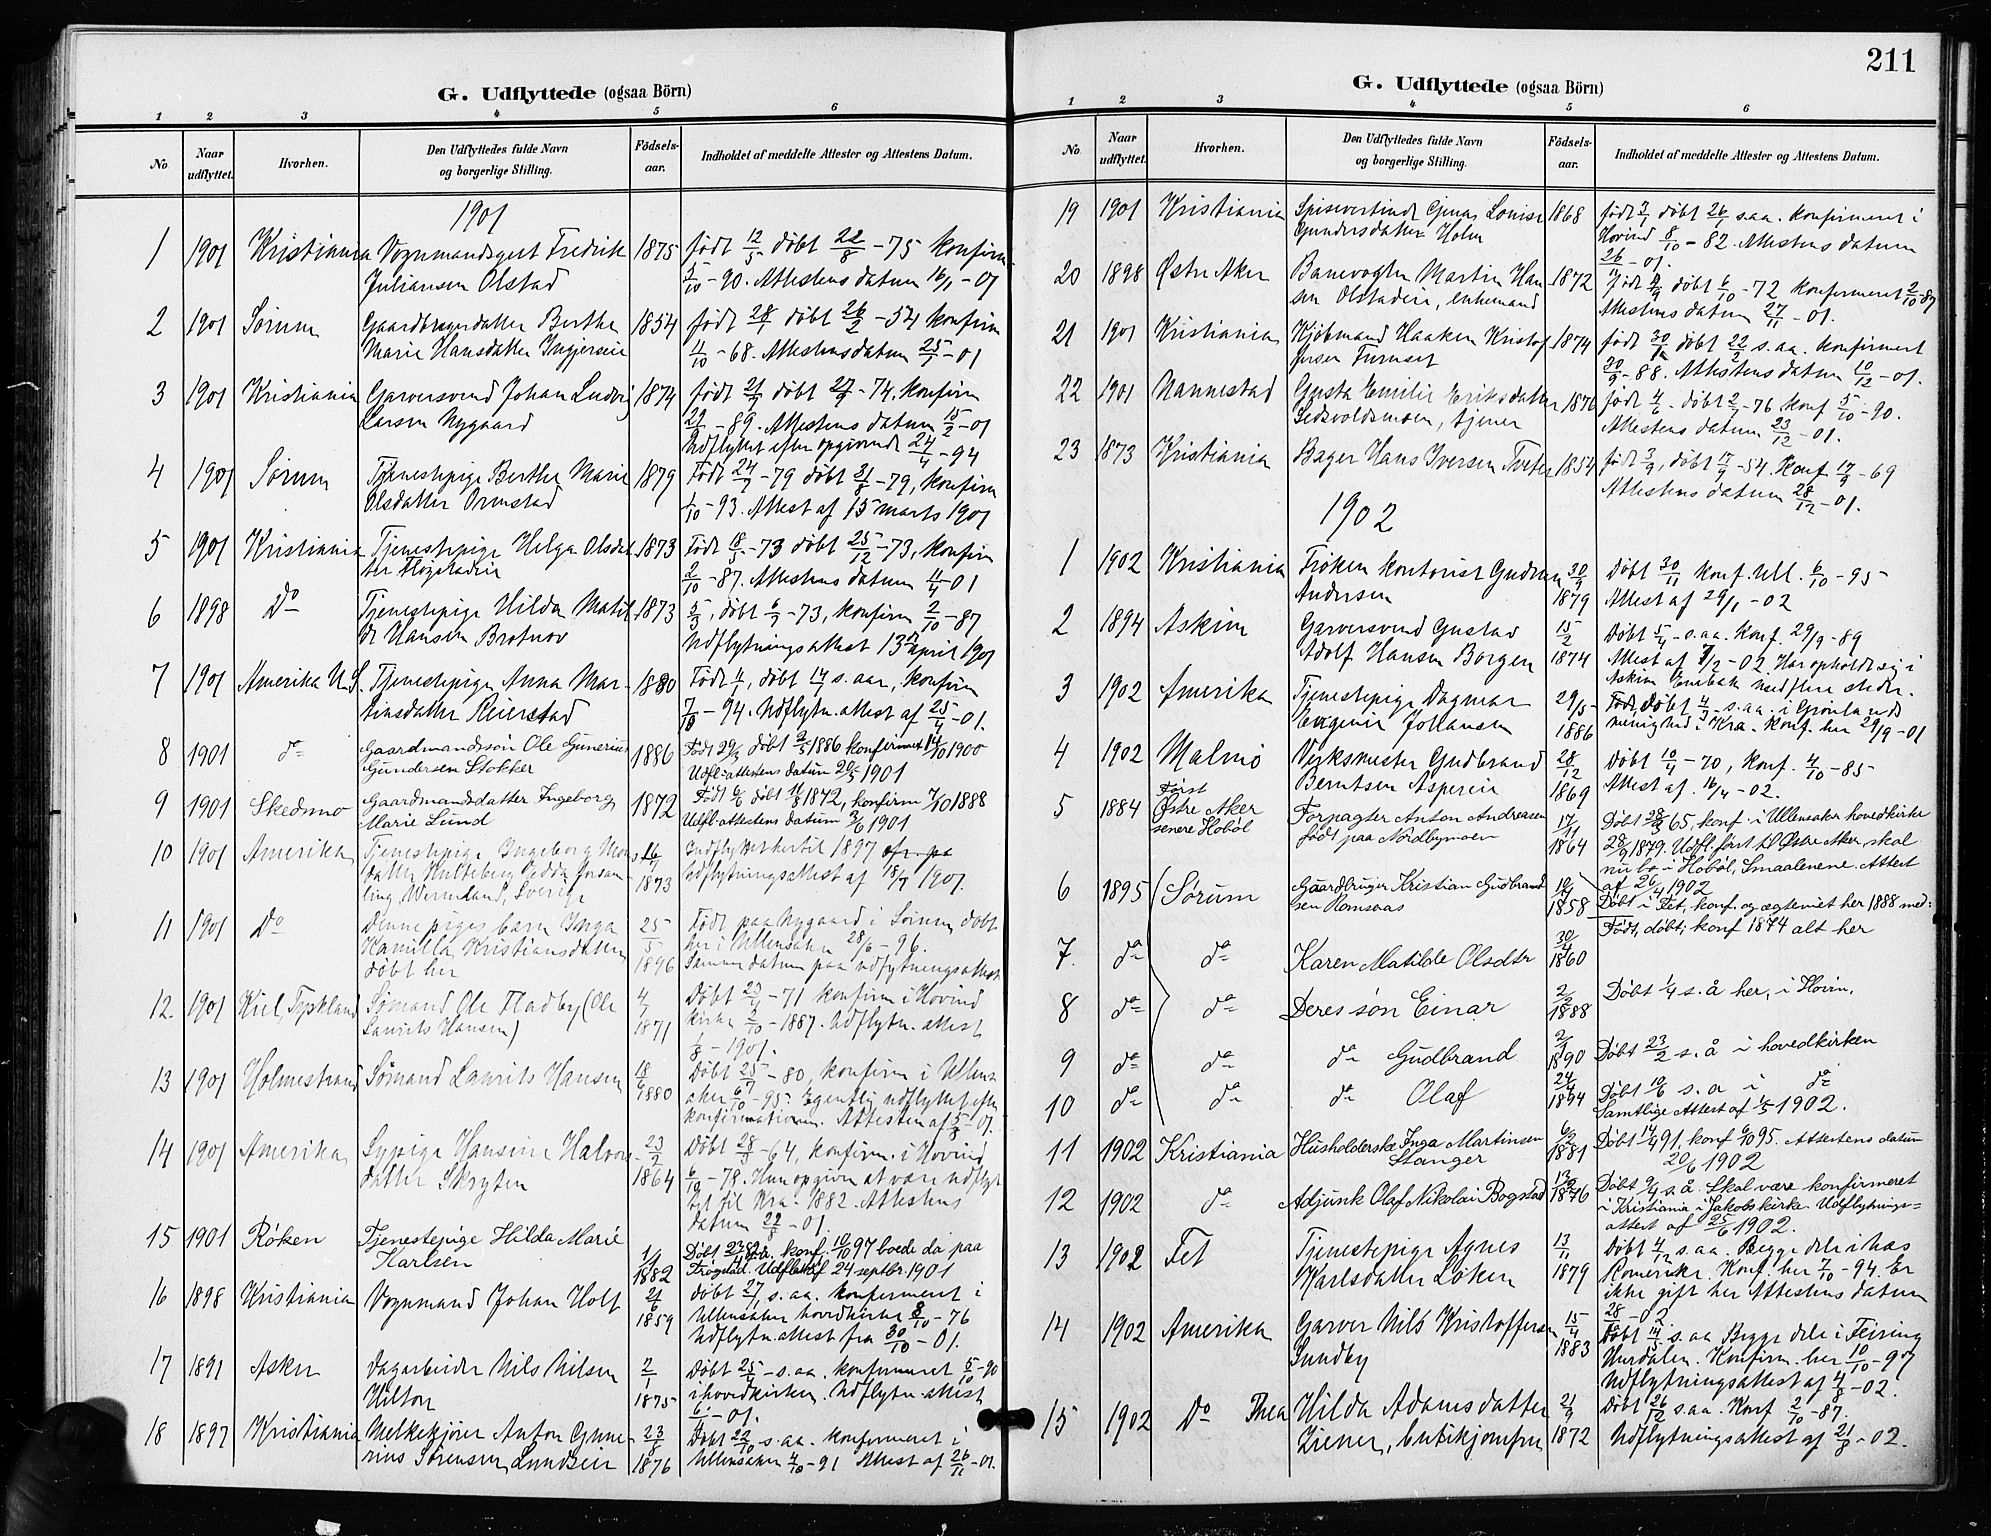 G. Udflyttede (ogsaa Börn)
1 2 3 4 5 6
No Naar udflyttet. Hvorhen. Den Udflyttedes fulde Navn og borgerlige Stilling. Födselsaar. Indholdet af meddelte Attester og Attestens Datum.
1901
1 1901 Kristiania Vognmandsgut Fredrik 1875 født 12/5 døbt 22/8 - 75 konfirm
Juliansen Olstad 5/10 - 90. Attestens datum 16/1 - 01
2 1901 Sørum Gaardbrugerdatter Berthe 1854 født 28/1 døbt 26/2 - 54 konfirm
Marie Hansdatter 11/10 - 68. Attestens datum 25/1 - 01
3 1901 Kristiania Garversvend Johan Ludvig 1874 født døbt - 74, konfirm
Larsen Nygaard - 89. Attestens datum 15/2 - 01
Udflyttet efter opgivende 24/4 - 94
4 1901 Sørum Tjenestepige Berthe Marie 1879 Født 24/7 - 79 døbt 31/8 - 79, konfirm
Olsdatter Ormstad 1/10 - 93. Attest af 15 marts 1901
5 1901 Kristiania Tjenestepige Helga Olsdat 1873 Født - 73 døbt 25/12 - 73, konfirm
ter 2/10 - 87. Attestens datum 11/4 - 01
6 1898 Do Tjenestepige Hilda Matil 1873 5/3, døbt 6/7 - 73, konfirm 2/10 - 87
de Hansen Brotnov Udflytningsattest 13de April 1901
7 1901 Amerika U.S. Tjenestepige Anna Mar- 1880 Født, døbt s. aar, konfirm
tinsdatter Reierstad 7/10 - 94. Udflytn. attest af 25/4 - 01.
8 1901 do Gaardmandssøn Ole Gunerius 1886 Født 29/3 døbt 2/5 1886 konfirmeret 14/10 1900
Gundersen Stokker Udfl-attestens datum 20/5 1901
9 1901 Skedsmo Gaardmandsdatter Ingeborg 1872 Født 6/6 døbt 11/8 1872, konfirm 1888
Marie Lund Udfl-attestens datum 3/6 1901
10 1901 Amerika Tjenestepige Ingeborg Mons 16/7 Indflyttet hertil 1897
datter 1873 Udflytningsattest af 18/7 1901.
ling, Wermland, Sverige
11 1901 Do barn Inga 25/5 Født paa Nygaard i Sørum, døbt
Kamilla Kristiansdatter 1896 her i Ullensaker 28/6 - 96.
døbt her Samme datum paa udflytningsattest
12 1901 Kiel, Tyskland Sømand Ole Fladby (Ole 4/7 Døbt 23/ - 71 konfirm i Hovind
Laurits Hansen) 1871 kirke 2/10 - 1887. Udflytn. attest
1/8 - 1901.
13 1901 Holmestrand Sømand Laurits Hansen 18/6 1880 Døbt 25/7 - 80, konfirm i Ullens
aker 6/10 - 95. Egentlig udflyttet efter
konfirmationen. Attesten af 5/8 - 01.
14 1901 Amerika Sypige Hansine Halvors 23/2 Døbt 28/3 - 64, konfirm. i Hovind
datter Skryten 1864 6/10 - 78. Hun opgiver at være udflyt
tet til Kra. 1882. Attestens
datum 22/8 - 01.
15 1901 Røken Tjenestepige Hilda Marie 1/1 Døbt konf. 10/10 97 boede da paa
Karlsen 1882 Frogstad. Udfl.att. af 24 septbr. 1901
16 1898 Kristiania Vognmand Johan Holt 21/6 døbt 27/11 s. aa. konfirmeret i
1859 Ullensaker hovedkirke 8/10 - 76
Udflytn. attest fra 30/10 - 01.
17 1891 Asker Dagarbeider Nils Nilsen 2/1 Døbt 25/ - s. aa. konfirmeret 5/10 - 90
Hilton 1875 i hovedkirken. Udflytn. attest
- 01.
18 1897 Kristiania Melkekjører Anton Gune- 23/8 Døbt 22/10 s. aa. konfirmeret i
rius Sørensen 1876 Ullensaker 4/10 - 91 Attest af 26/11 - 01.
211
G. Udflyttede (ogsaa Börn)
1 2 3 4 5 6
No Naar udflyttet. Hvorhen. Den Udflyttedes fulde Navn og borgerlige Stilling. Födselsaar. Indholdet af meddelte Attester og Attestens Datum.
19 1901 Kristiania Spisevertinde Louise 1868 født 3/1 døbt 26/1 s. aa. konfirmeret i
Gundersdatter Holm Hovind 8/10 - 82. Attestens datum
26/ - 01.
20 1898 Østre Aker Banevogter Martin Han 1872 Født 2/9 døbt 6/10 - 72 konfirmeret 2/10 - 87
sen Olstadeie, enkemand Attestens datum 27/11 - 01.
21 1901 Kristiania Kjøbmand Haaken Kristof 1874 født 30/ døbt 22/2 s. aa. konfirmeret
fersen Furuset 30/9 - 88. Attestens datum 10/12 - 01.
22 1901 Nannestad Gusta Emilie Eriksdatter 1876 født 4/6 døbt 2/7 - 76 konf 5/10 - 90.
tjener Attestens datum 23/12 - 01.
23 1873 Kristiania Bager Hans Iversen Tveter 1854 født 3/9, døbt 17/9 - 54. Konf. 17/9 - 69
Attestens datum 28/12 - 01.
1902
1 1902 Kristiania Frøken kontorist Gudrun 30/9 Døbt 30/11 konf. Ull. 6/10 - 95
Andersen 1879 Attest af 29/1 - 02
2 1894 Askim Garversvend Gustav 15/2 Døbt 5/4 - s. aa. Konf 29/9 - 89
Adolf Hansen Borgen 1874 Attest af 7/2 - 02 Har opholdt sig i
Askim Enebak med flere steder.
3 1902 Amerika Tjenestepige Dagmar 29/5 Født, døbt s. aa. i Grønlands
Eugenie Johansen 1886 menighed i Kra. konf. her 29/9 - 01
4 1902 Malmö Verksmester Gudbrand 28/12 Døbt 10/4 - 70, konf. 4/10 - 85
Berntsen Aspereie 1869 Attest af. 16/4 - 02.
5 1884 Først Østre Aker senere Hobøl Forpagter Anton Andreasen 17/11 Døbt 28/3 65, konf. i Ullensaker hovedkirke
født paa Nordbymoen 1864 28/9 1879. Udfl. først til Østre Aker, skal
nu bo i Hobøl, Smaalenene. Attest
af 26/4 1902
6 1895 Sørum Gaardbruger Kristian Gudbrand 1858 Døbt i Fet, konf. og ægteviet her 1888 med:
sen Homsaas Født, døbt, konf 1874 alt her
7. do do Karen Matilde Olsdtr 30/4 1860
8 do do Deres søn Einar 2/2 1888 Døbt 1/4 s. å her, i Hovin,
9 do do do Gudbrand 2/1 1890 Døbt 23/2 s. å i hovedkirken
10 do do do Olaf 24/4 1894 Døbt 10/6 s. a i do
Samtlige Attest af 1/5 1902.
11 1902 Kristiania Husholderske Inga Martinsen 6/2 Døbt 14/4 91, konf 6/10 95. Attestens datum
Stanger 1881 20/6 1902
12 1902 do Adjunk Olaf Nikolai Bogstad 1876 Døbt 9/4 s. å. Skal være konfirmeret
i Kristiania i Jakobs kirke. Udflytnings-
attest af 25/6 1902.
13 1902 Fet Tjenestepige Agnes 13/11 Døbt 4/12 s. aa. Begge dele i Næs
Karlsdatter Løken 1879 Romerike. Konf. her 7/10 - 94. Er
ikke gift her Attestens datum
28/ - 02.
14 1902 Amerika Garver Nils Kristoffersen 15/4 Døbt 14/5 s. aa Begge dele i Feiring
Sundby 1883 Hurdalen. Konfirm. her 10/10 - 97
Udflytningsattest af 4/8 - 02.
15 1902 Do Thea Hilda Adamsdatter 21/9 Døbt 26/12 s. aa. Konf 2/10 - 87.
Ziener, butikjomfru 1872 Udflytningsattest af 21/8 - 02.